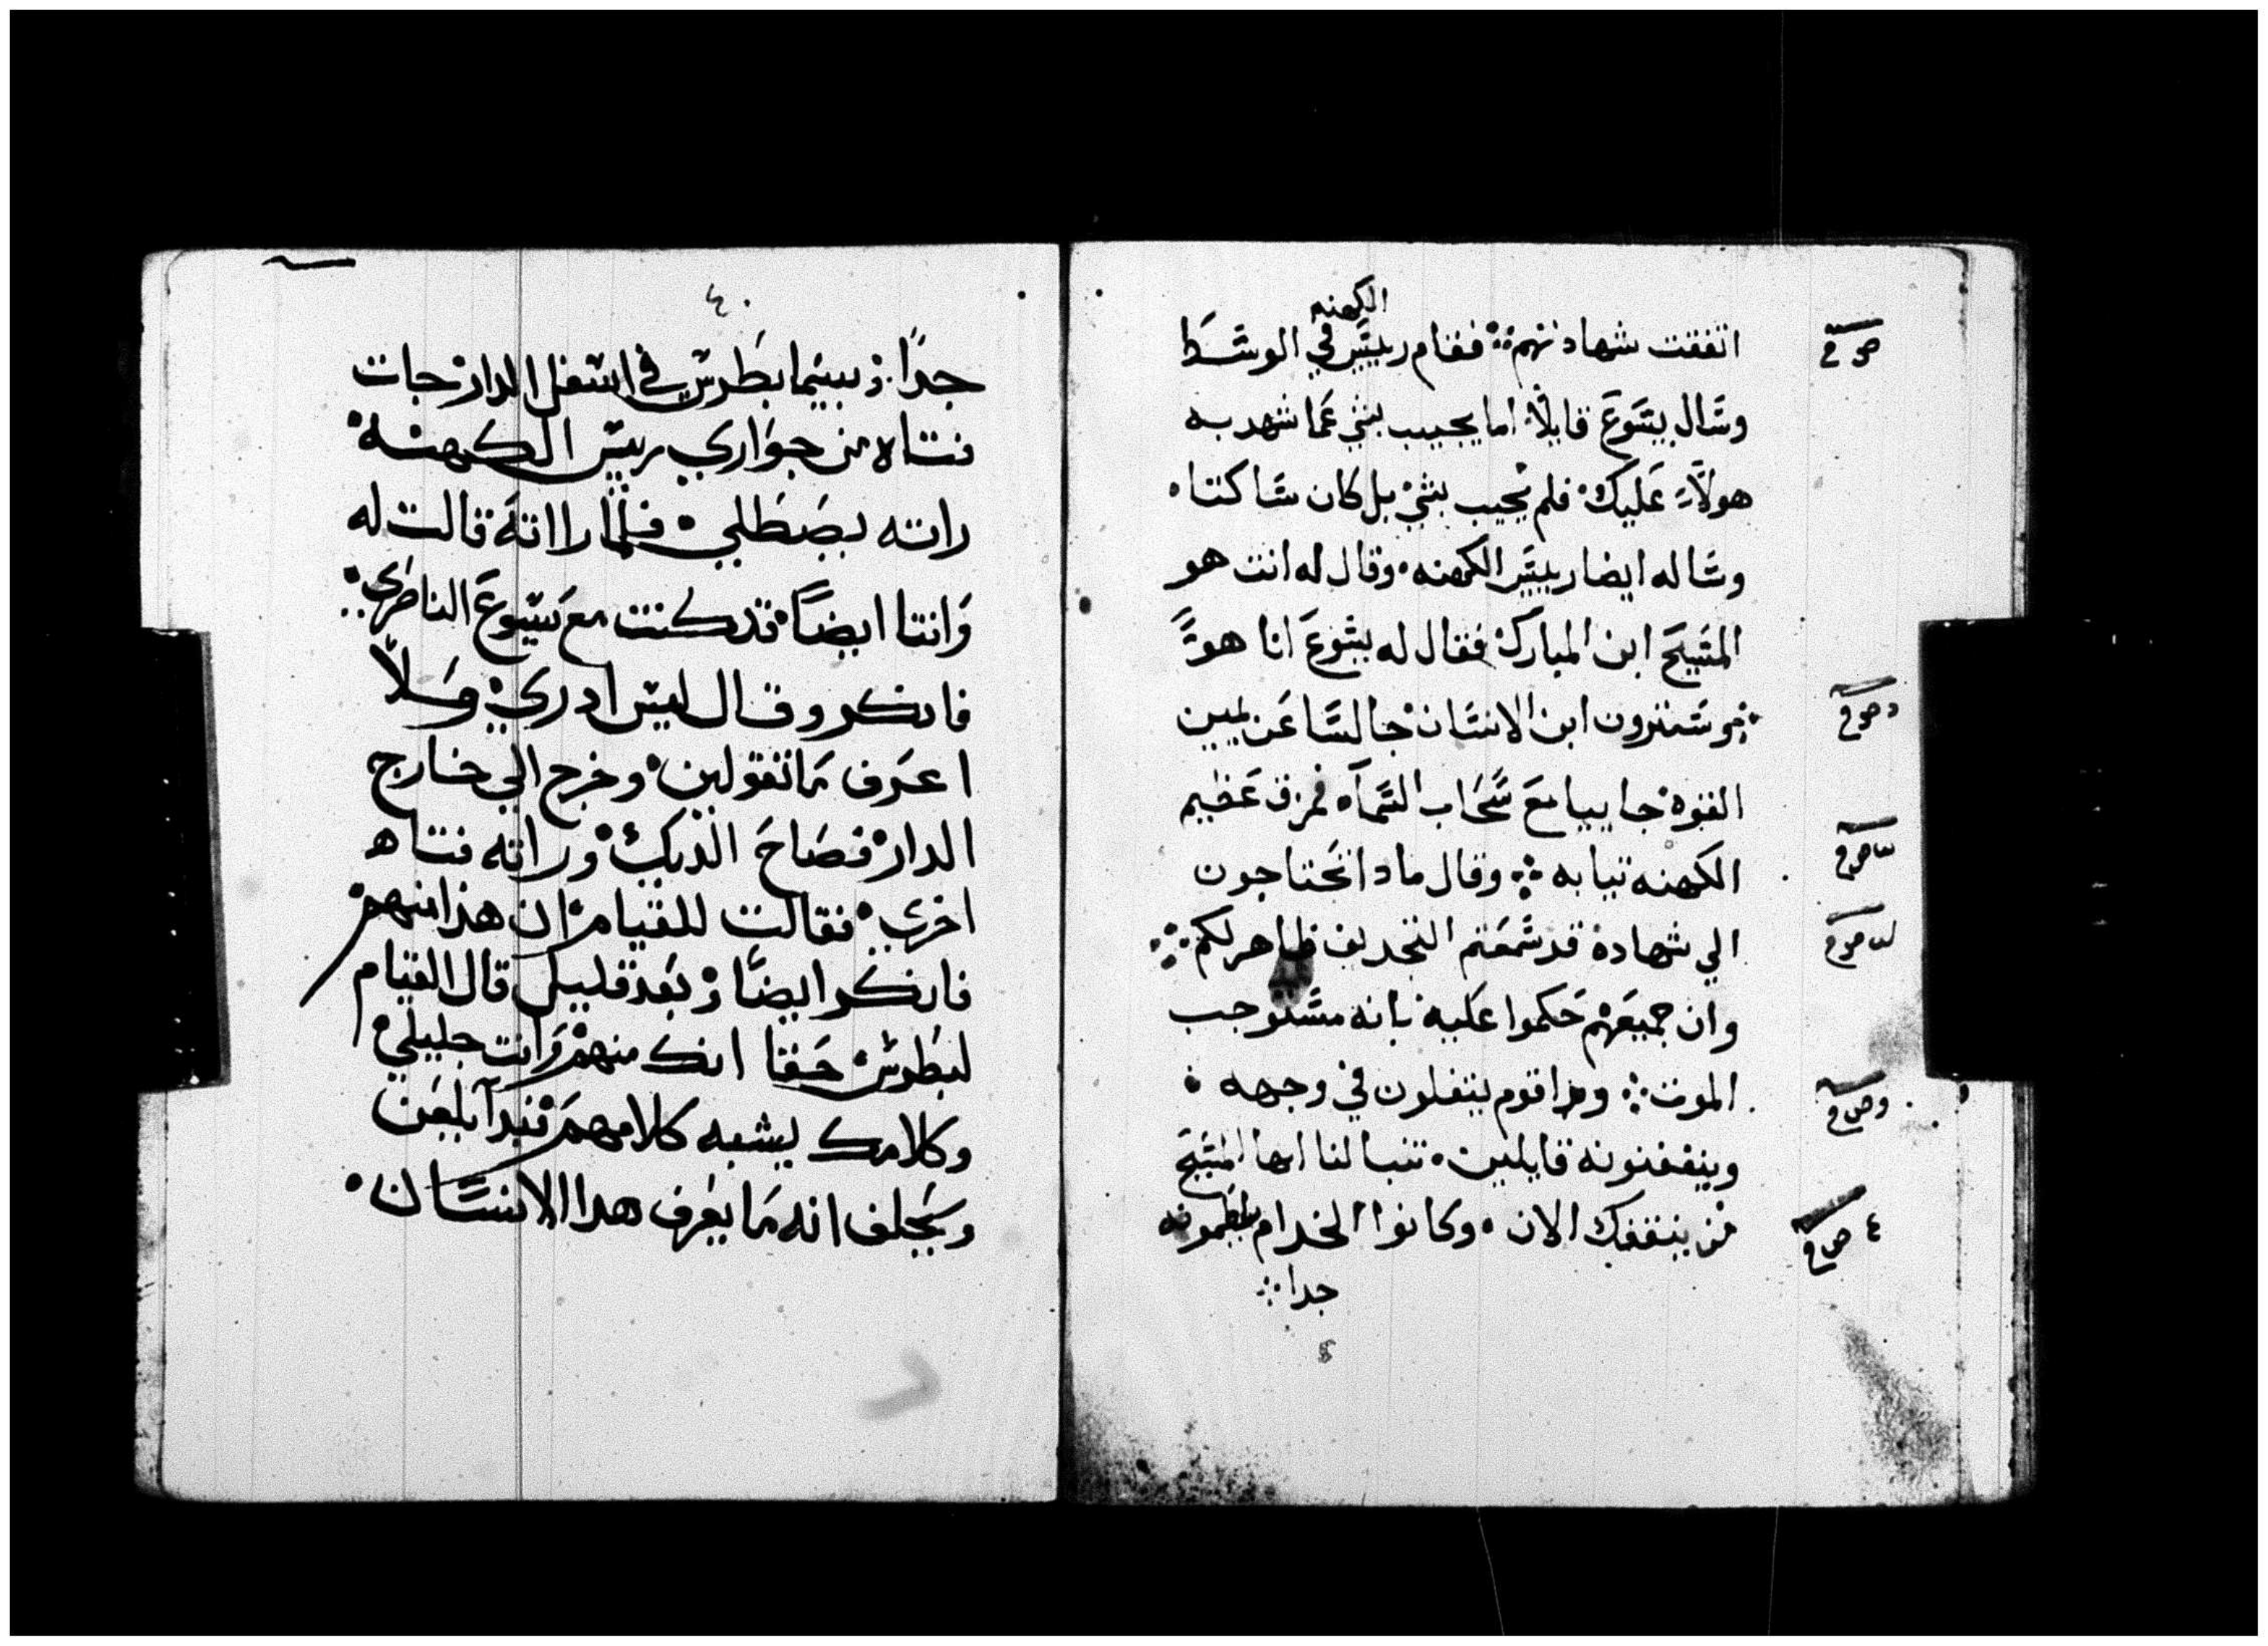 الكهنه
اتفقت شهادتهم فقام رييس في الوسط
وسال يسوع قايلا اما يجيب بشي عما شهد به
هولاء عليك فلم يجيب بشي بل كان ساكتا
وساله ايضا رييس الكهنه وقال له انت هو
المسيح ابن المبارك فقال له يسوع انا هو
وسترون ابن الانسان جالسا عن يمين
القوه جاييا مع سحاب السماء فمزق عظيم
الكهنه ثيابه وقال ماذا تحتاجون
الي شهاده قد سمعتم التجديف ظاهر لكم
وان جميعهم حكموا عليه بانه مستوجب
الموت قوم يتفلون في وجهه
قايلين تنبا لنا ايها المسيح
من الان وكانوا الخدام يلطمونه
جدا
٤٠
جدا بينما بطرس في اسفل الدار جات
فتاه من جواري رييس الكهنه
راته يصطلي فلما راته قالت له
وانتا ايضا قد كنت مع يسوع الناصري
فانكر وقال ليس ادري ولا
اعرف ما تقولين وخرج الي خارج
الدار فصاح الديك وراته فتاه
اخري فقالت للقيام ان هذا منهم
فانكر ايضا وبعد قليل قال القيام
لبطرس حقا انك منهم وانت جليلي
وكلامك يشبه كلامهم فبدا يلعن
ويحلف انه ما يعرف هدا الانسان